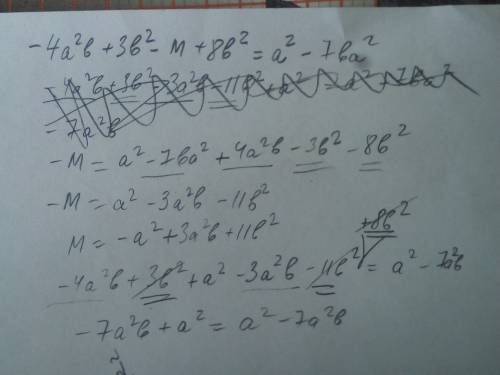 -4a²b + 3b² - M + 8b² = a² - 7ba²
-7a²b
-M = a² - 7ba² + 4a²b - 3b² - 8b²
-M = a² - 3a²b - 11b²
M = -a² + 3a²b + 11b²
+8b²
-4a²b + 3b² + a² - 3a²b - 11b² = a² - 7a²b
-7a²b + a² = a² - 7a²b